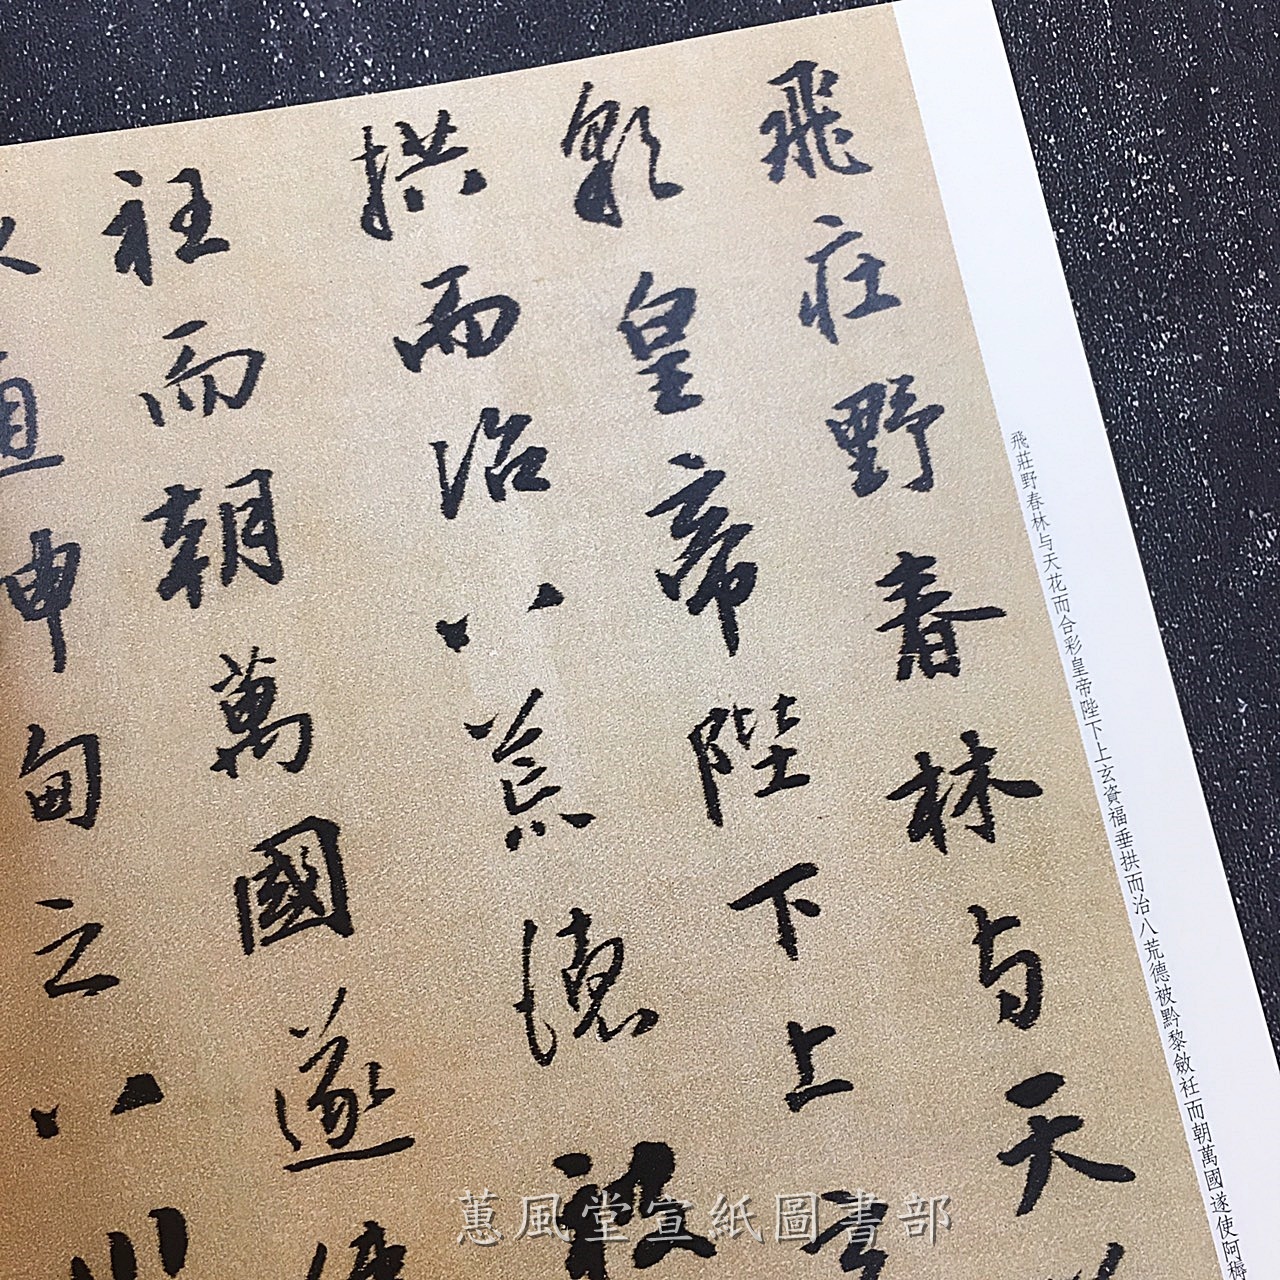 飛莊野春林与天
彩皇帝陛下上玄
拱而治八荒德被
衽而朝萬國遂使
直申甸之八川
飛莊野春林与天花而合彩皇帝陛下上玄資福垂拱而治八荒德被黔黎斂衽而朝萬國遂使阿耨
蕙風堂宣紙圖書部